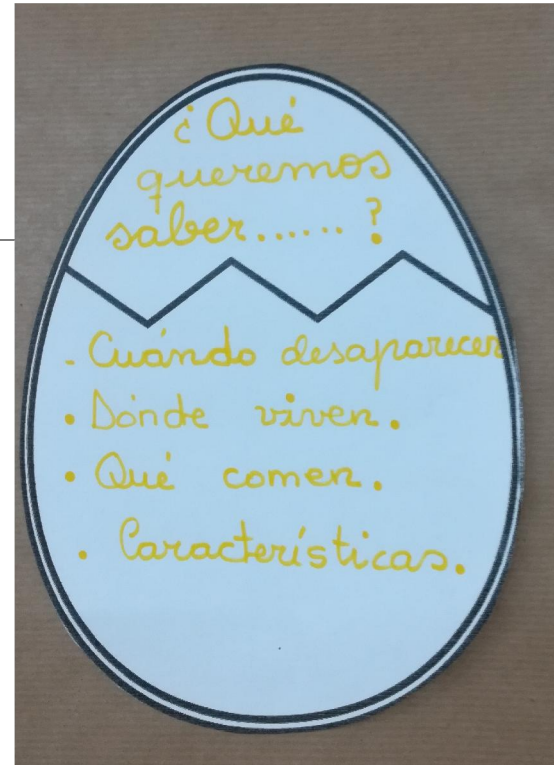 ¿Qué
queremos
saber......?
- Cuándo desaparecen
• Dónde viven.
• Qué comen.
• Características.